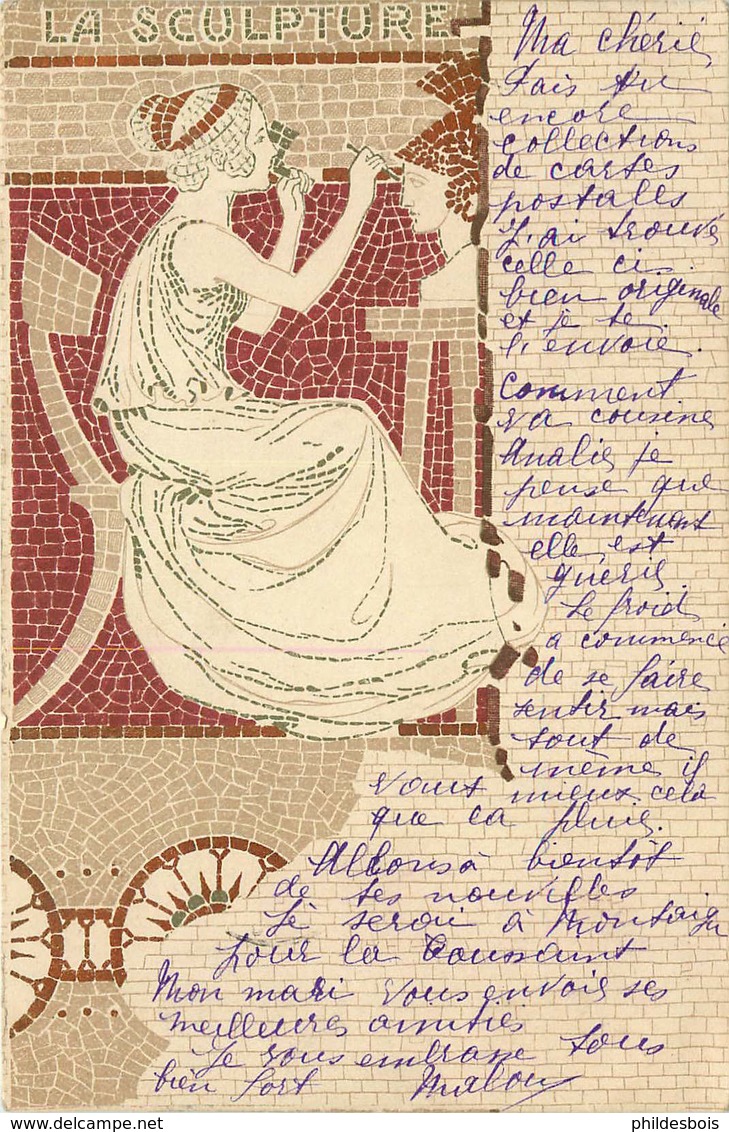 LA SCULPTURE
Ma chérie
Fais tu
encore
collections
de cartes
postales
J'ai trouvé
celle ci
bien originale
et je te
l'envoie.
Comment
va cousine
Analie je
pense que
maintenant
elle est
guérie
Le froid
a commencé
de se faire
sentir mais
tout de
même il
vaut mieux cela
que ca pluie.
Allons à bientôt
de tes nouvelles
Je serai à Montaigu
pour la Toussaint
Mon mari vous envoie ses
meilleures amitiés
Je vous embrasse tous
bien fort Malou
phildesbois